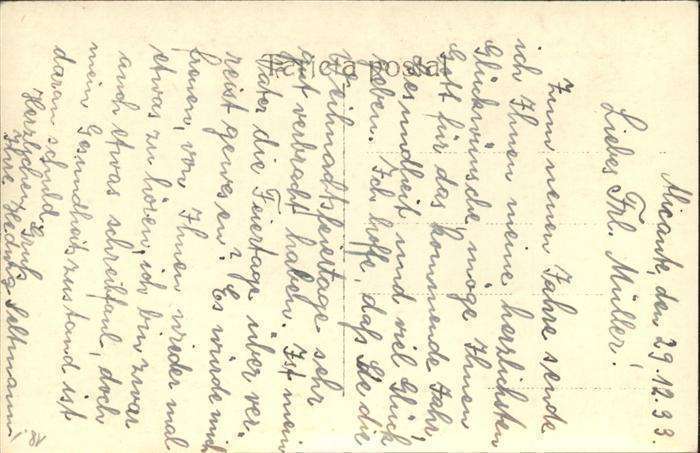 Tarjeta postal
Alicante, den 29.12.33.
Liebes Frl. Müller!
Zum neuen Jahre sende
ich Ihnen meine herzlichsten
Glückwünsche, möge Ihnen
Gott für das kommende Jahr,
Gesundheit und viel Glück
geben. Ich hoffe, daß Sie die
Weihnachtsfeiertage sehr
gut verbracht haben. Ist mein
Vater die Feiertage über ver-
reist gewesen? Es würde mich
freuen, von Ihnen wieder mal
etwas zu hören, ich bin zwar
auch etwas schreibfaul, doch
mein Gesundheitszustand ist
daran schuld.
Herzliche Gruß
Ihre Hedwig